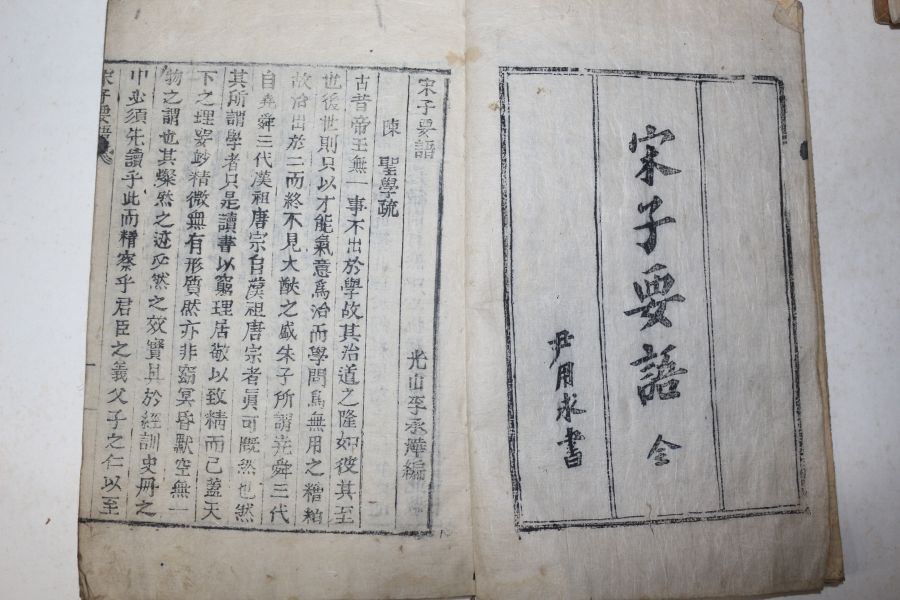 宋子要語 全
尹用求書
宋子要語
光山李承 編
陳 聖學疏
古昔帝王無一事不出於學故其治道之隆如彼其至
也後世則只以才能氣意爲治而學問爲無用之糟粕
故治出於二而終不見大猷之盛朱子所謂堯舜三代
自堯舜三代漢祖唐宗自漢祖唐宗者眞可慨然也然
其所謂學者只是讀書以窮理居敬以致精而已盖天
下之理要妙精微無有形質然亦非窈冥昏默空無一
物之謂也其燦然之迹必然之效實具於經訓史冊之
中必須先讀乎此而精察乎君臣之義父子之仁以至
宋子要語